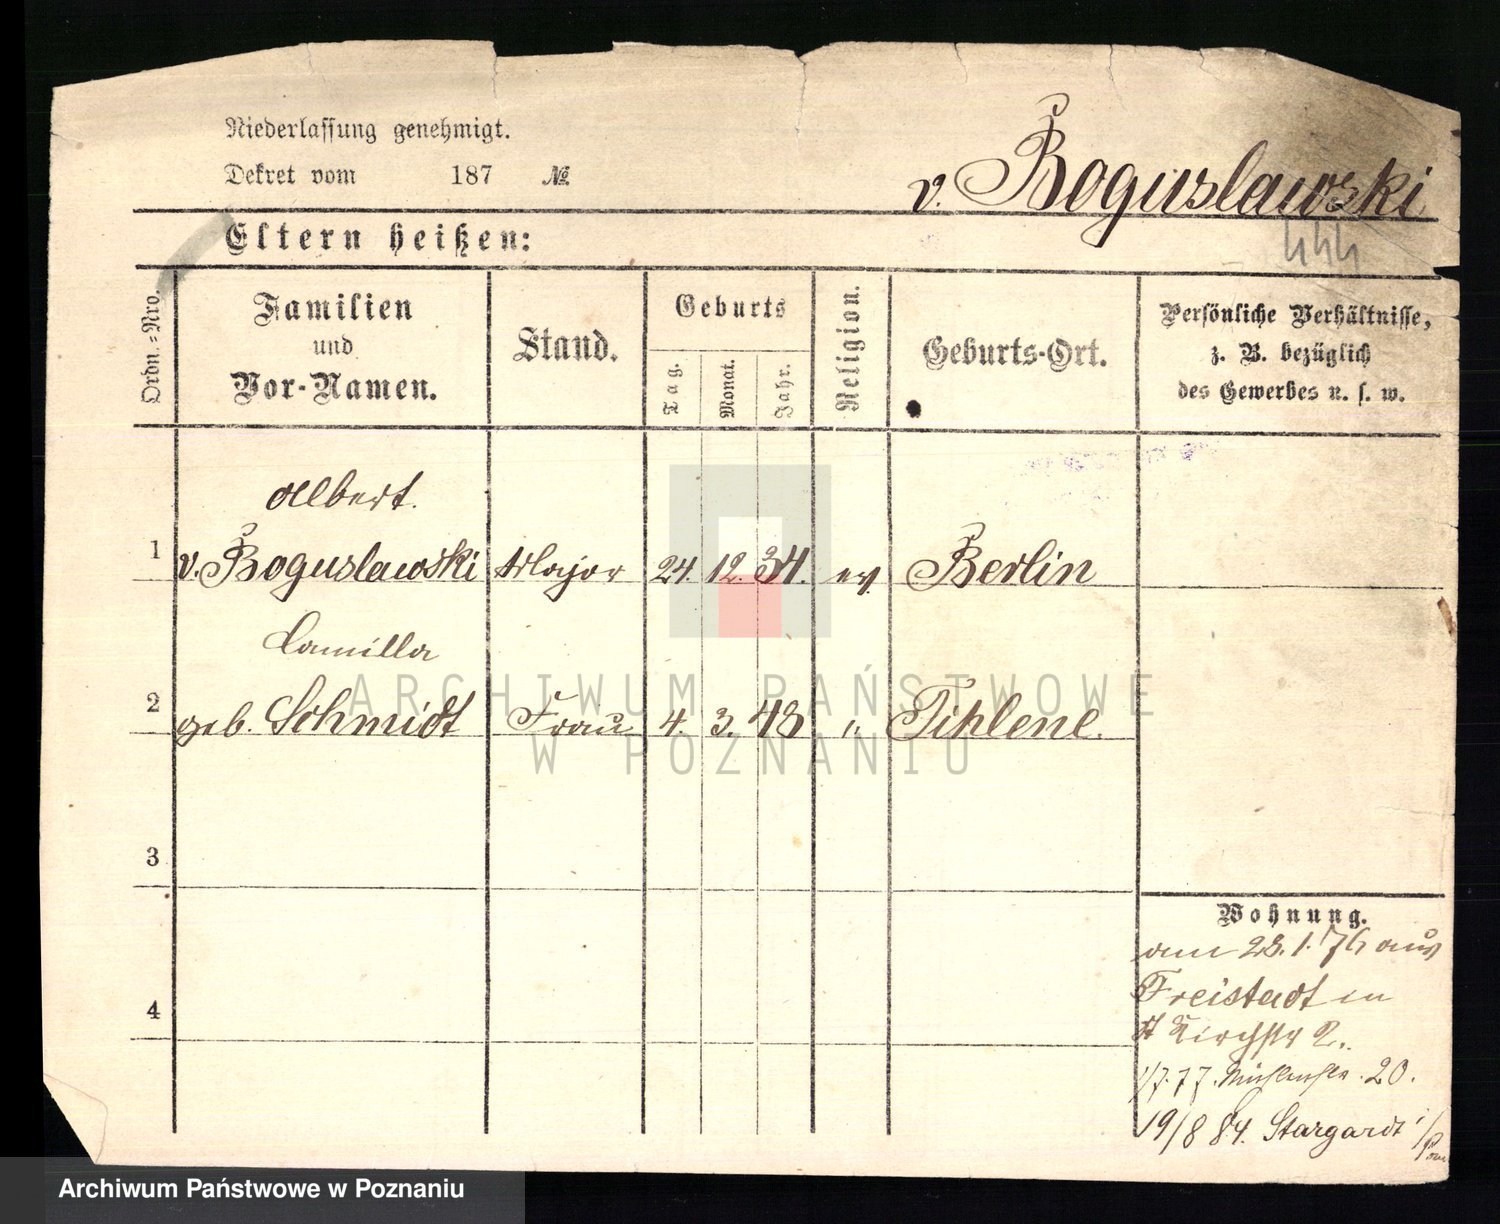 Niederlassung genehmigt.
Dekret vom 187 №
v. Boguslawski
Eltern heißen:
444
Ordn.-Nro.
Familien
und
Vor-Namen.
Stand.
Geburts
Tag.
Monat.
Jahr.
Religion.
Geburts-Ort.
Persönliche Verhältnisse,
z. B. bezüglich
des Gewerbes u. s. w.
Albert
1 v. Boguslawski Major 24. 12. 34. ev. Berlin
Camilla
2 geb. Schmidt Frau 4. 3. 48 " Tihlene.
3
4
Wohnung.
am 28. 1. 76 aus
Freistadt in
Kirchstr 2.
1/7. 77. Mühlenstr. 20.
19/8 84. Stargardt i/Pom
ARCHIWUM PAŃSTWOWE
W POZNANIU
Archiwum Państwowe w Poznaniu